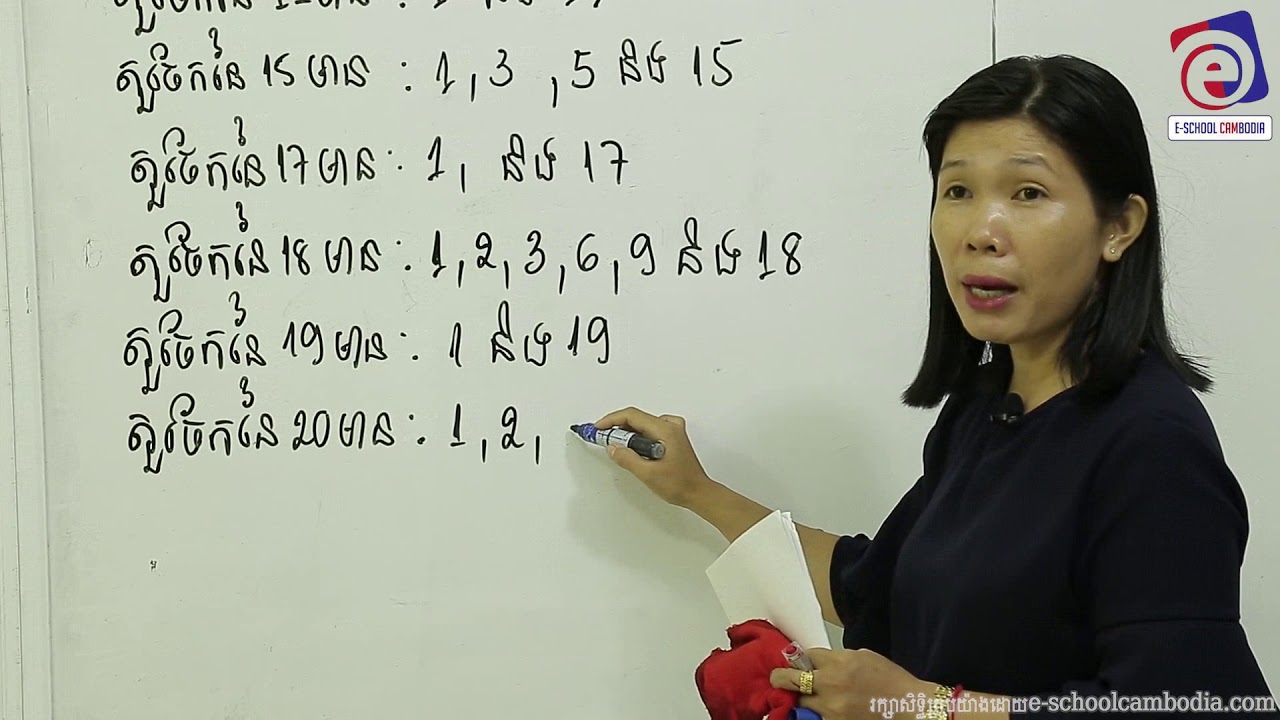 តួចែកនៃ 15 មាន : 1 , 3 , 5 និង 15
តួចែកនៃ 17 មាន : 1 , និង 17
តួចែកនៃ 18 មាន : 1 , 2 , 3 , 6 , 9 និង 18
តួចែកនៃ 19 មាន : 1 និង 19
តួចែកនៃ 20 មាន : 1 , 2 ,
e
E-SCHOOL CAMBODIA
រក្សាសិទ្ធិគ្រប់យ៉ាងដោយ e-schoolcambodia.com